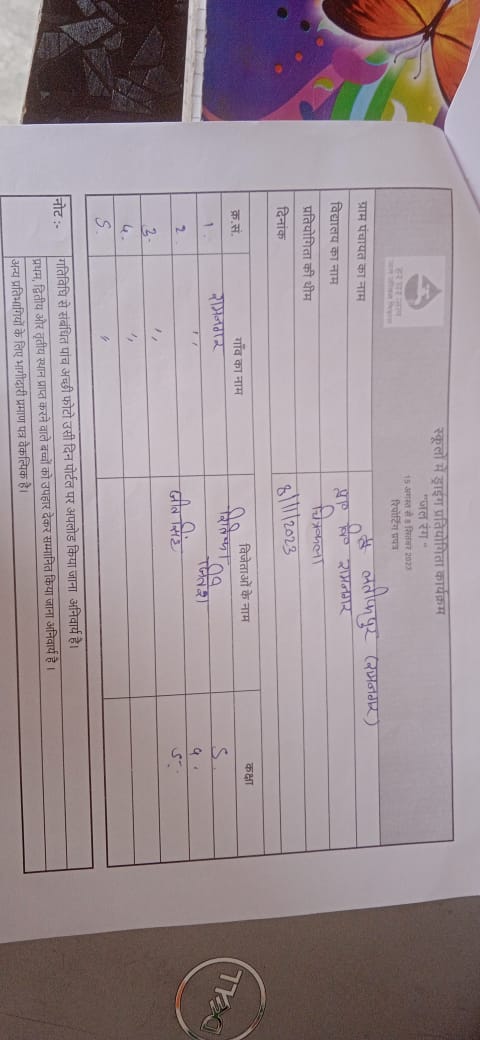 हर घर जल
जल जीवन मिशन
स्कूलों में ड्राइंग प्रतियोगिता कार्यक्रम
"जल रंग"
15 अगस्त से 8 सितंबर 2023
रिपोर्टिंग प्रपत्र
ग्राम पंचायत का नाम (रामनगर)
विद्यालय का नाम रामनगर
प्रतियोगिता की थीम चित्रकला
दिनांक 8/11/2023
क्र.सं. गाँव का नाम विजेताओं के नाम कक्षा
1. रामनगर 5.
2. ,,
3. ,,
4. ,,
5. ,,
नोट :- गतिविधि से संबंधित पांच अच्छी फोटो उसी दिन पोर्टल पर अपलोड किया जाना अनिवार्य है।
प्रथम, द्वितीय और तृतीय स्थान प्राप्त करने वाले बच्चों को उपहार देकर सम्मानित किया जाना अनिवार्य है।
अन्य प्रतिभागियों के लिए भागीदारी प्रमाण पत्र वैकल्पिक है।
DELL